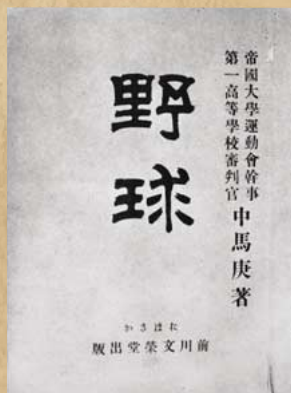 帝國大學運動會幹事
第一高等學校審判官
中馬庚著
野球
おほさか
前川文榮堂出版